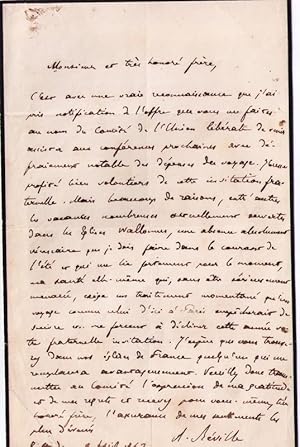 Monsieur et très honoré frère,
C'est avec une vraie reconnaissance que j'ai
pris notification de l'offre que vous me faites
au nom du Comité de l'Union libérale de
aux conférences prochaines avec dé-
fraiement notable des dépenses du voyage. J'eusse
profité bien volontiers de cette invitation fra-
ternelle. Mais beaucoup de raisons, entre autres
les vacances nombreuses actuellement ouvertes
dans les Eglises Wallonnes, une absence absolument
nécessaire que je dois faire dans le courant de
l'été et qui me lie pour le moment,
ma santé elle-même qui, sans être sérieusement
menacée, exige un traitement momentané que le
voyage d'ici à Paris empêcherait de
suivre me forcent à décliner cette année votre
fraternelle invitation. J'espère que vous trouve-
rez dans nos églises de France quelqu'un qui me
remplacera avantageusement. Veuillez donc trans-
mettre au Comité l'expression de ma gratitude
et de mes regrets et recevez pour vous-même, très
honoré frère, l'assurance de mes sentiments les
plus dévoués
A. Réville